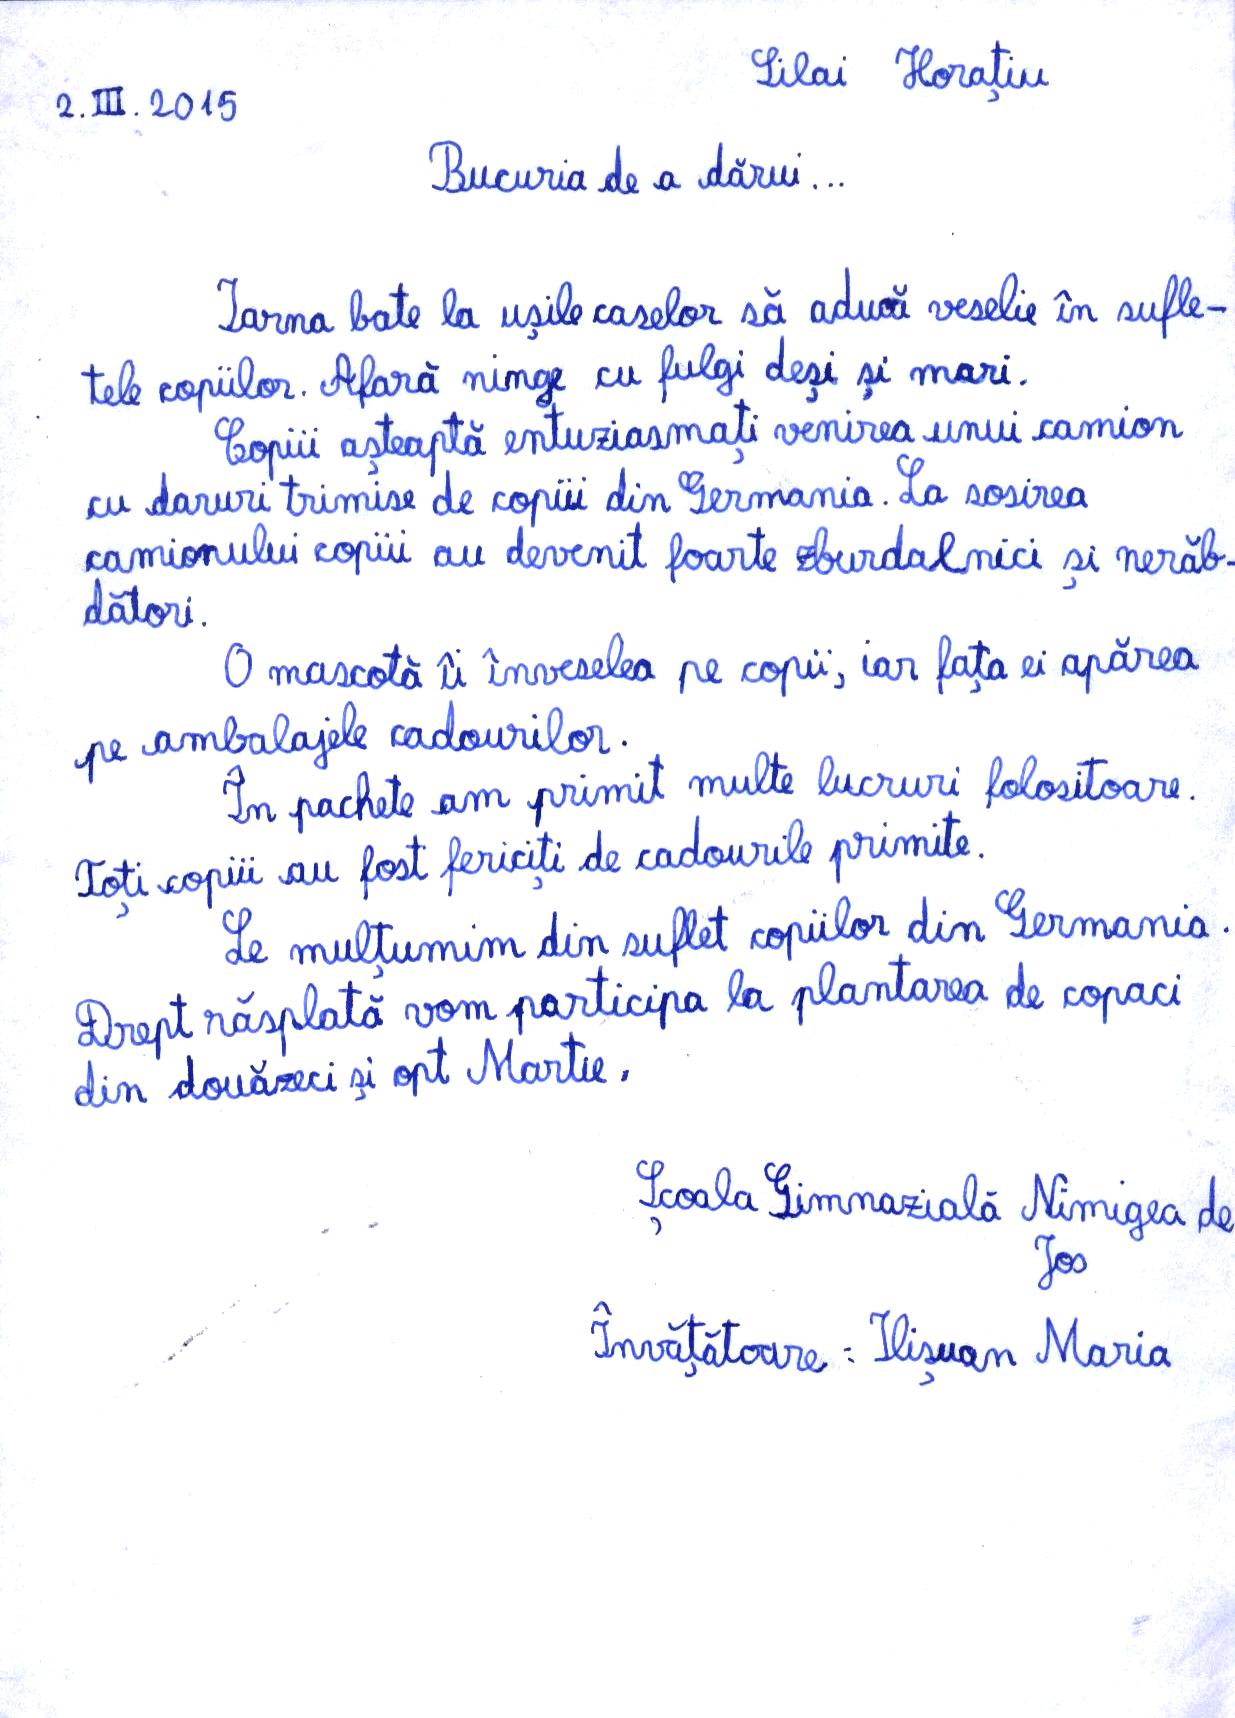 Silai Horațiu
2.III.2015
Bucuria de a dărui...
Iarna bate la ușile caselor să aducă veselie în sufle-
tele copiilor. Afară ninge cu fulgi deși și mari.
Copiii așteaptă entuziasmați venirea unui camion
cu daruri trimise de copiii din Germania. La sosirea
camionului copiii au devenit foarte zburdalnici și nerăb-
dători.
O mascotă îi înveselea pe copii, iar fața ei apărea
pe ambalajele cadourilor.
În pachete am primit multe lucruri folositoare.
Toți copiii au fost fericiți de cadourile primite.
Le mulțumim din suflet copiilor din Germania.
Drept răsplată vom participa la plantarea de copaci
din douăzeci și opt Martie.
Școala Gimnazială Nimigea de
Jos
Învățătoare: Ilișuan Maria